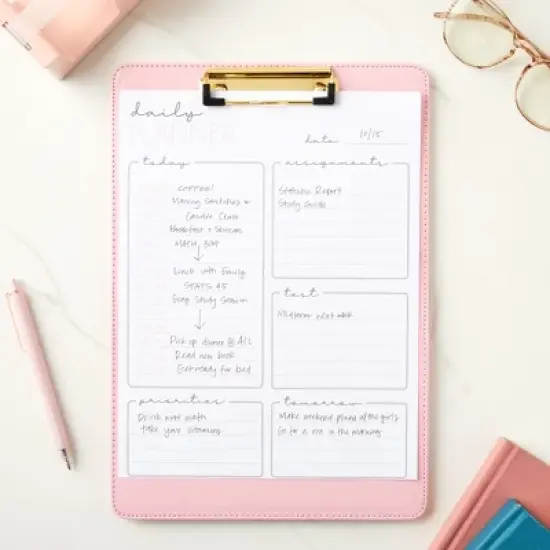 daily
PLANNER
date 10/15
today
COFFEE!
Morning Stretches &
Candle Craze
Breakfast & Skincare
Math
Lunch with Emily
STATS 45
Group Study Session
Pick up dinner @
Read new book
Get ready for bed
assignments
Statistics Report
Study Guide
test
Midterm next week
priorities
Drink more water
Take your vitamins
tomorrow
Make weekend plans w/ the girls
Go for a run in the morning